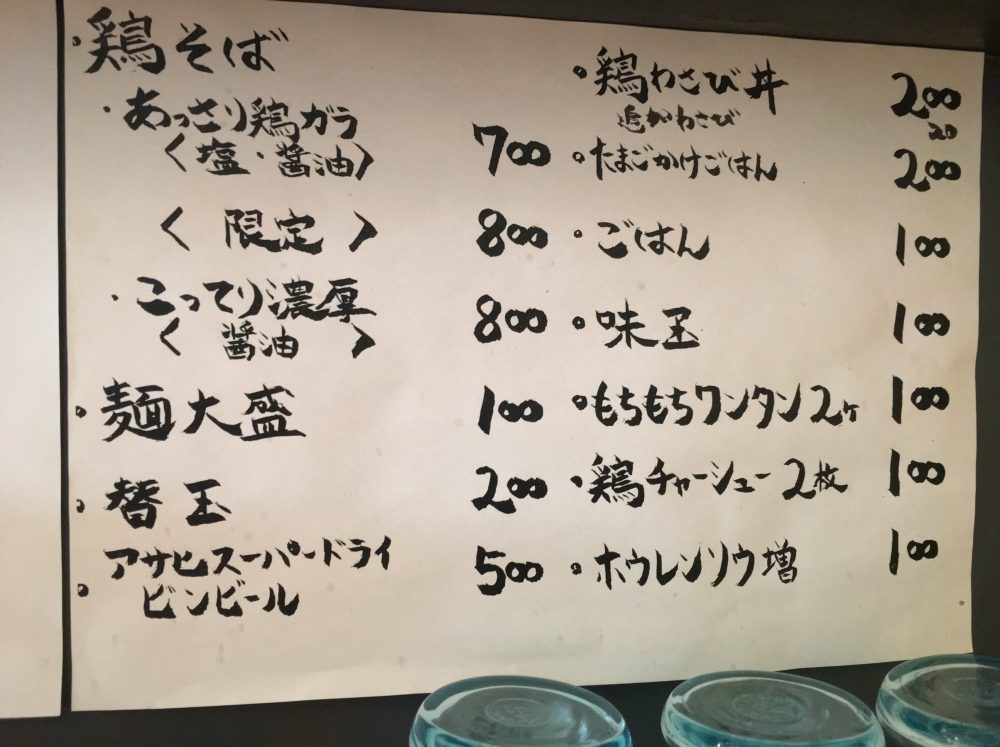 鶏そば
・あっさり鶏ガラ
〈塩・醤油〉 700
〈限定〉 800
・こってり濃厚
〈醤油〉 800
麺大盛 100
替玉 200
アサヒスーパードライ
ビンビール 500
鶏わさび丼 200
追加わさび 20
たまごかけごはん 200
ごはん 100
味玉 100
もちもちワンタン2ヶ 100
鶏チャーシュー2枚 100
ホウレンソウ増 100